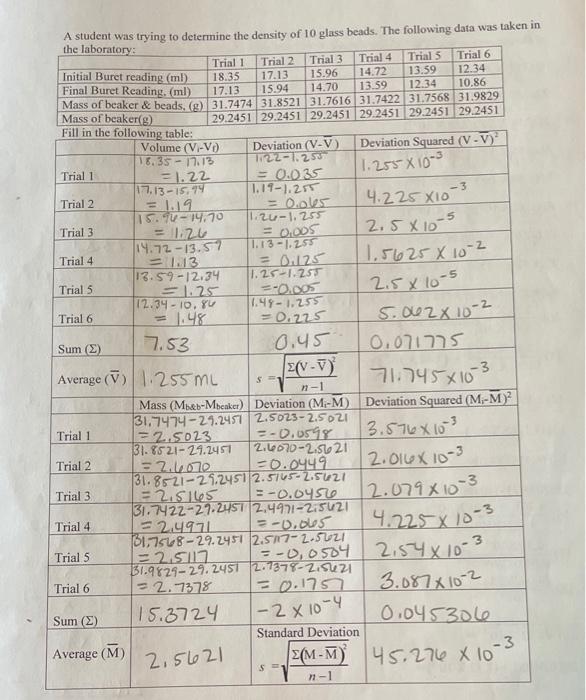 A student was trying to determine the density of 10 glass beads. The following data was taken in
the laboratory:
Trial 1 Trial 2 Trial 3 Trial 4 Trial 5 Trial 6
Initial Buret reading (ml) 18.35 17.13 15.96 14.72 13.59 12.34
Final Buret Reading, (ml) 17.13 15.94 14.70 13.59 12.34 10.86
Mass of beaker & beads, (g) 31.7474 31.8521 31.7616 31.7422 31.7568 31.9829
Mass of beaker(g) 29.2451 29.2451 29.2451 29.2451 29.2451 29.2451
Fill in the following table:
Volume (Vi-Vf) Deviation (V-V̅) Deviation Squared (V - V̅)²
18.35-17.13 1.22-1.255 1.255 X 10⁻³
Trial 1 = 1.22 = 0.035
17.13-15.94 1.19-1.255 4.225 X10⁻³
Trial 2 = 1.19 = 0.065
15.96-14.70 1.26-1.255 2.5 X 10⁻⁵
Trial 3 = 1.26 = 0.005
14.72-13.59 1.13-1.255 1.5625 X 10⁻²
Trial 4 = 1.13 = 0.125
13.59-12.34 1.25-1.255 2.5 X 10⁻⁵
Trial 5 = 1.25 =-0.005
12.34-10.86 1.48-1.255 5.062 X 10⁻²
Trial 6 = 1.48 = 0.225
Sum (Σ) 7.53 0.45 0.071775
Average (V̅) 1.255 mL s = √(Σ(V - V̅)²/n-1) 71.745 X10⁻³
Mass (Mb&b-Mbeaker) Deviation (Mi-M̅) Deviation Squared (Mi-M̅)²
31.7474-29.2451 2.5023-2.5621 3.576 X 10⁻³
Trial 1 = 2.5023 =-0.0598
31.8521-29.2451 2.6070-2.5621 2.016 X 10⁻³
Trial 2 = 2.6070 =0.0449
31.8521-29.2451 2.5165-2.5621 2.079 X 10⁻³
Trial 3 = 2.5165 = -0.0456
31.7422-29.2451 2.4971-2.5621 4.225 X 10⁻³
Trial 4 = 2.4971 = -0.065
31.7568-29.2451 2.5117-2.5621 2.54 X 10⁻³
Trial 5 = 2.5117 = -0.0504
31.9829-29.2451 2.7378-2.5621 3.087 X 10⁻²
Trial 6 = 2.7378 = 0.1757
Sum (Σ) 15.3724 -2 X 10⁻⁴ 0.045306
Standard Deviation
Average (M̅) 2.5621 s = √(Σ(M - M̅)²/n-1) 45.276 X 10⁻³